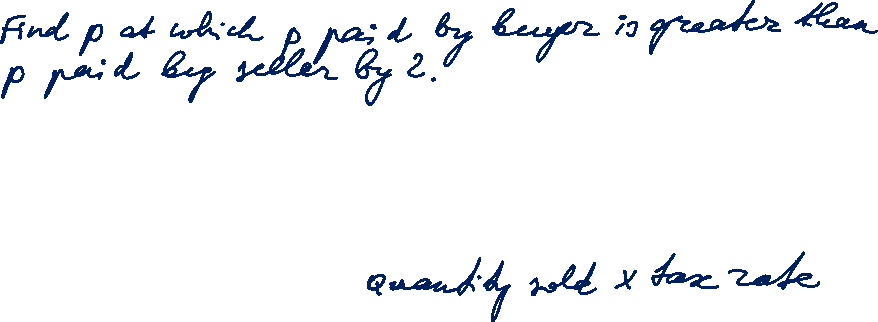 Find p at which p paid by buyer is greater than
p paid by seller by 2.
Quantity sold x tax rate